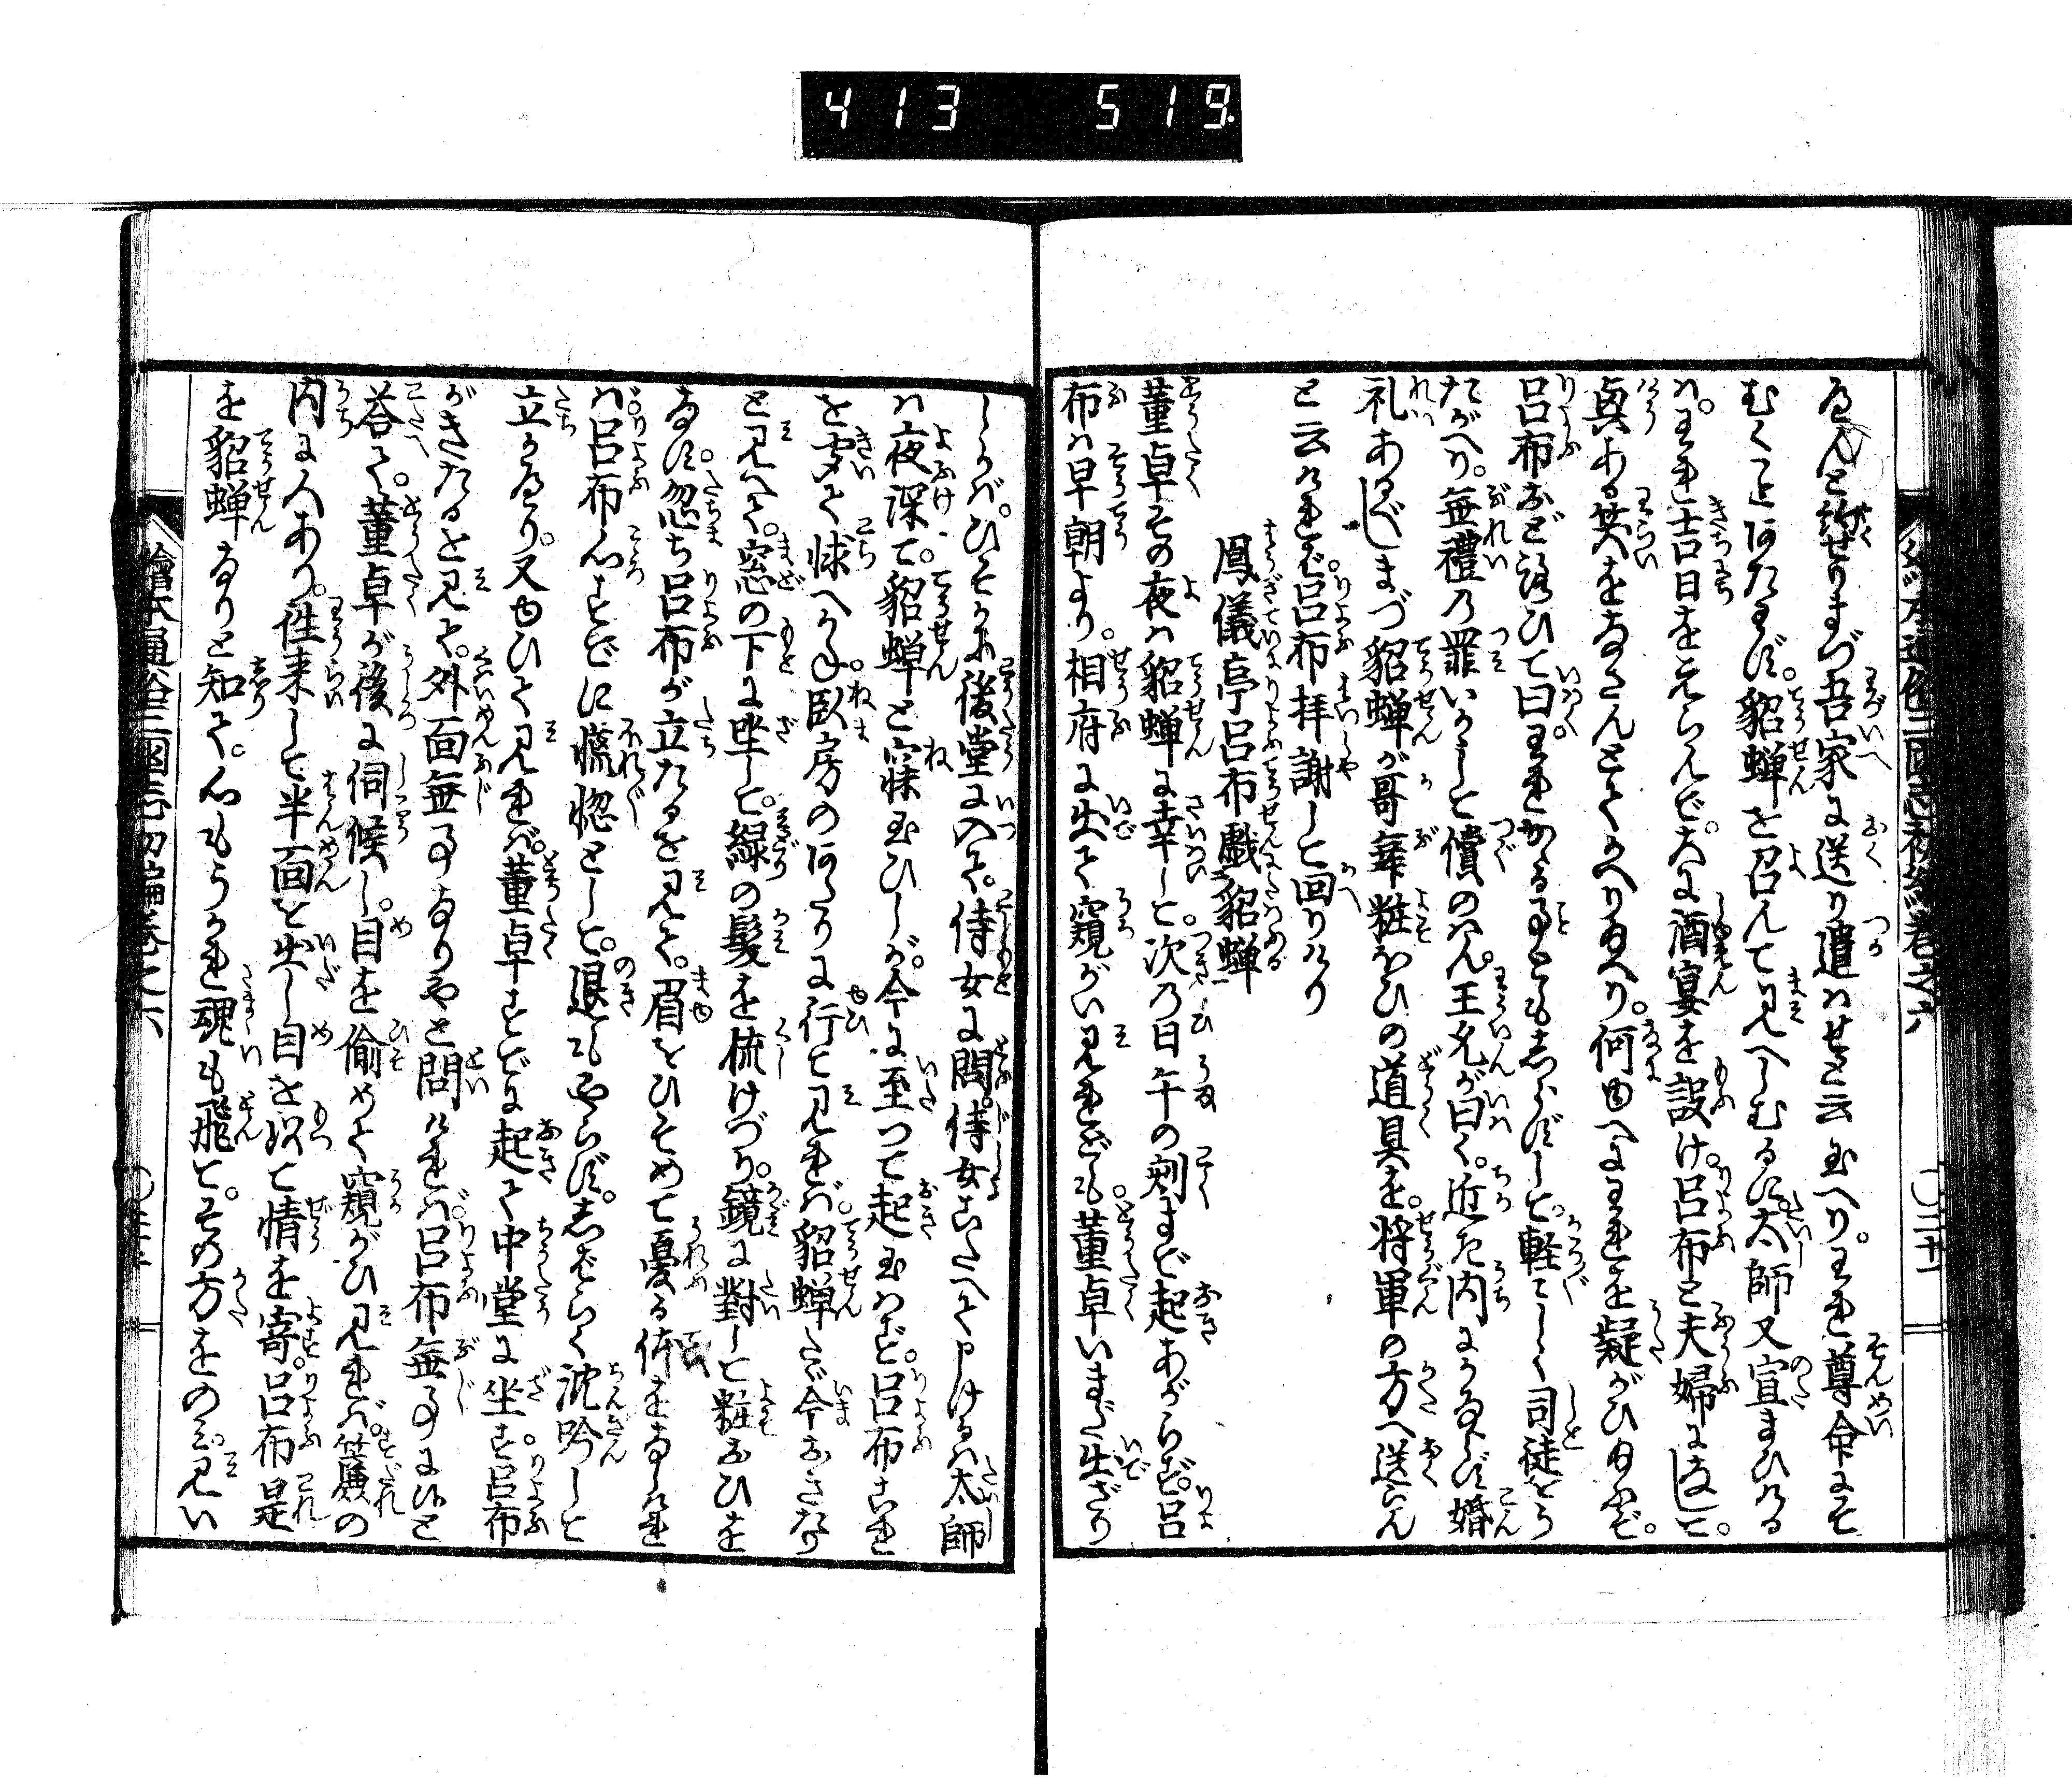 413 519
ゑんと許せりまづ吾家に送り遣はせと云玉へりわれ尊命にそ
むくことあたはず貂蝉を召んて見へしむるに太師又宣まひける
はわれ吉日をえらんで大に酒宴を設け呂布と夫婦になして
真ある笑をなさんとてかへり給へり何ゆへにわれを疑がひ給ふぞ
呂布など語ひて曰われかゝる事ともしらずして軽々しく司徒をう
たがへり無禮の罪いかにして償のはん王允が曰く近き内にかならず婚
礼あるべしまづ貂蝉が哥舞粧ひの道具を将軍の方へ送らん
と云ければ呂布拝謝して回りけり
鳳儀亭呂布戯貂蝉
董卓その夜は貂蝉に幸して次の日午の刻まで起あがらず呂
布は早朝より相府に出て窺がい見れども董卓いまだ出ざり
しかばひそかに後堂に入て侍女に問侍女こたへて申けるは太師
は夜深て貂蝉と寐玉ひしが今に至つて起玉はず呂布これ
を聞て怺へかね臥房のほとりに行て見れば貂蝉たゞ今おきたり
と見へて窓の下に坐して緑の髪を梳けづり鏡に對して粧ひを
なす忽ち呂布が立たるを見て眉をひそめて憂る体をなしけれ
ば呂布心すでに慌惚として退もやらずしばらく沈吟して
立かゑり又ゆひて見れば董卓すでに起て中堂に坐す呂布
がきたるを見て外面無事なりやと問ければ呂布無事に候と
荅て董卓が後に伺候し目を偷めて窺がひ見れば簾の
内に人あり徃来して半面を出し目を以て情を寄呂布是
を貂蝉なりと知て心もうかれ魂も飛てその方をのみ見い
繪本通俗三國志初編巻之六